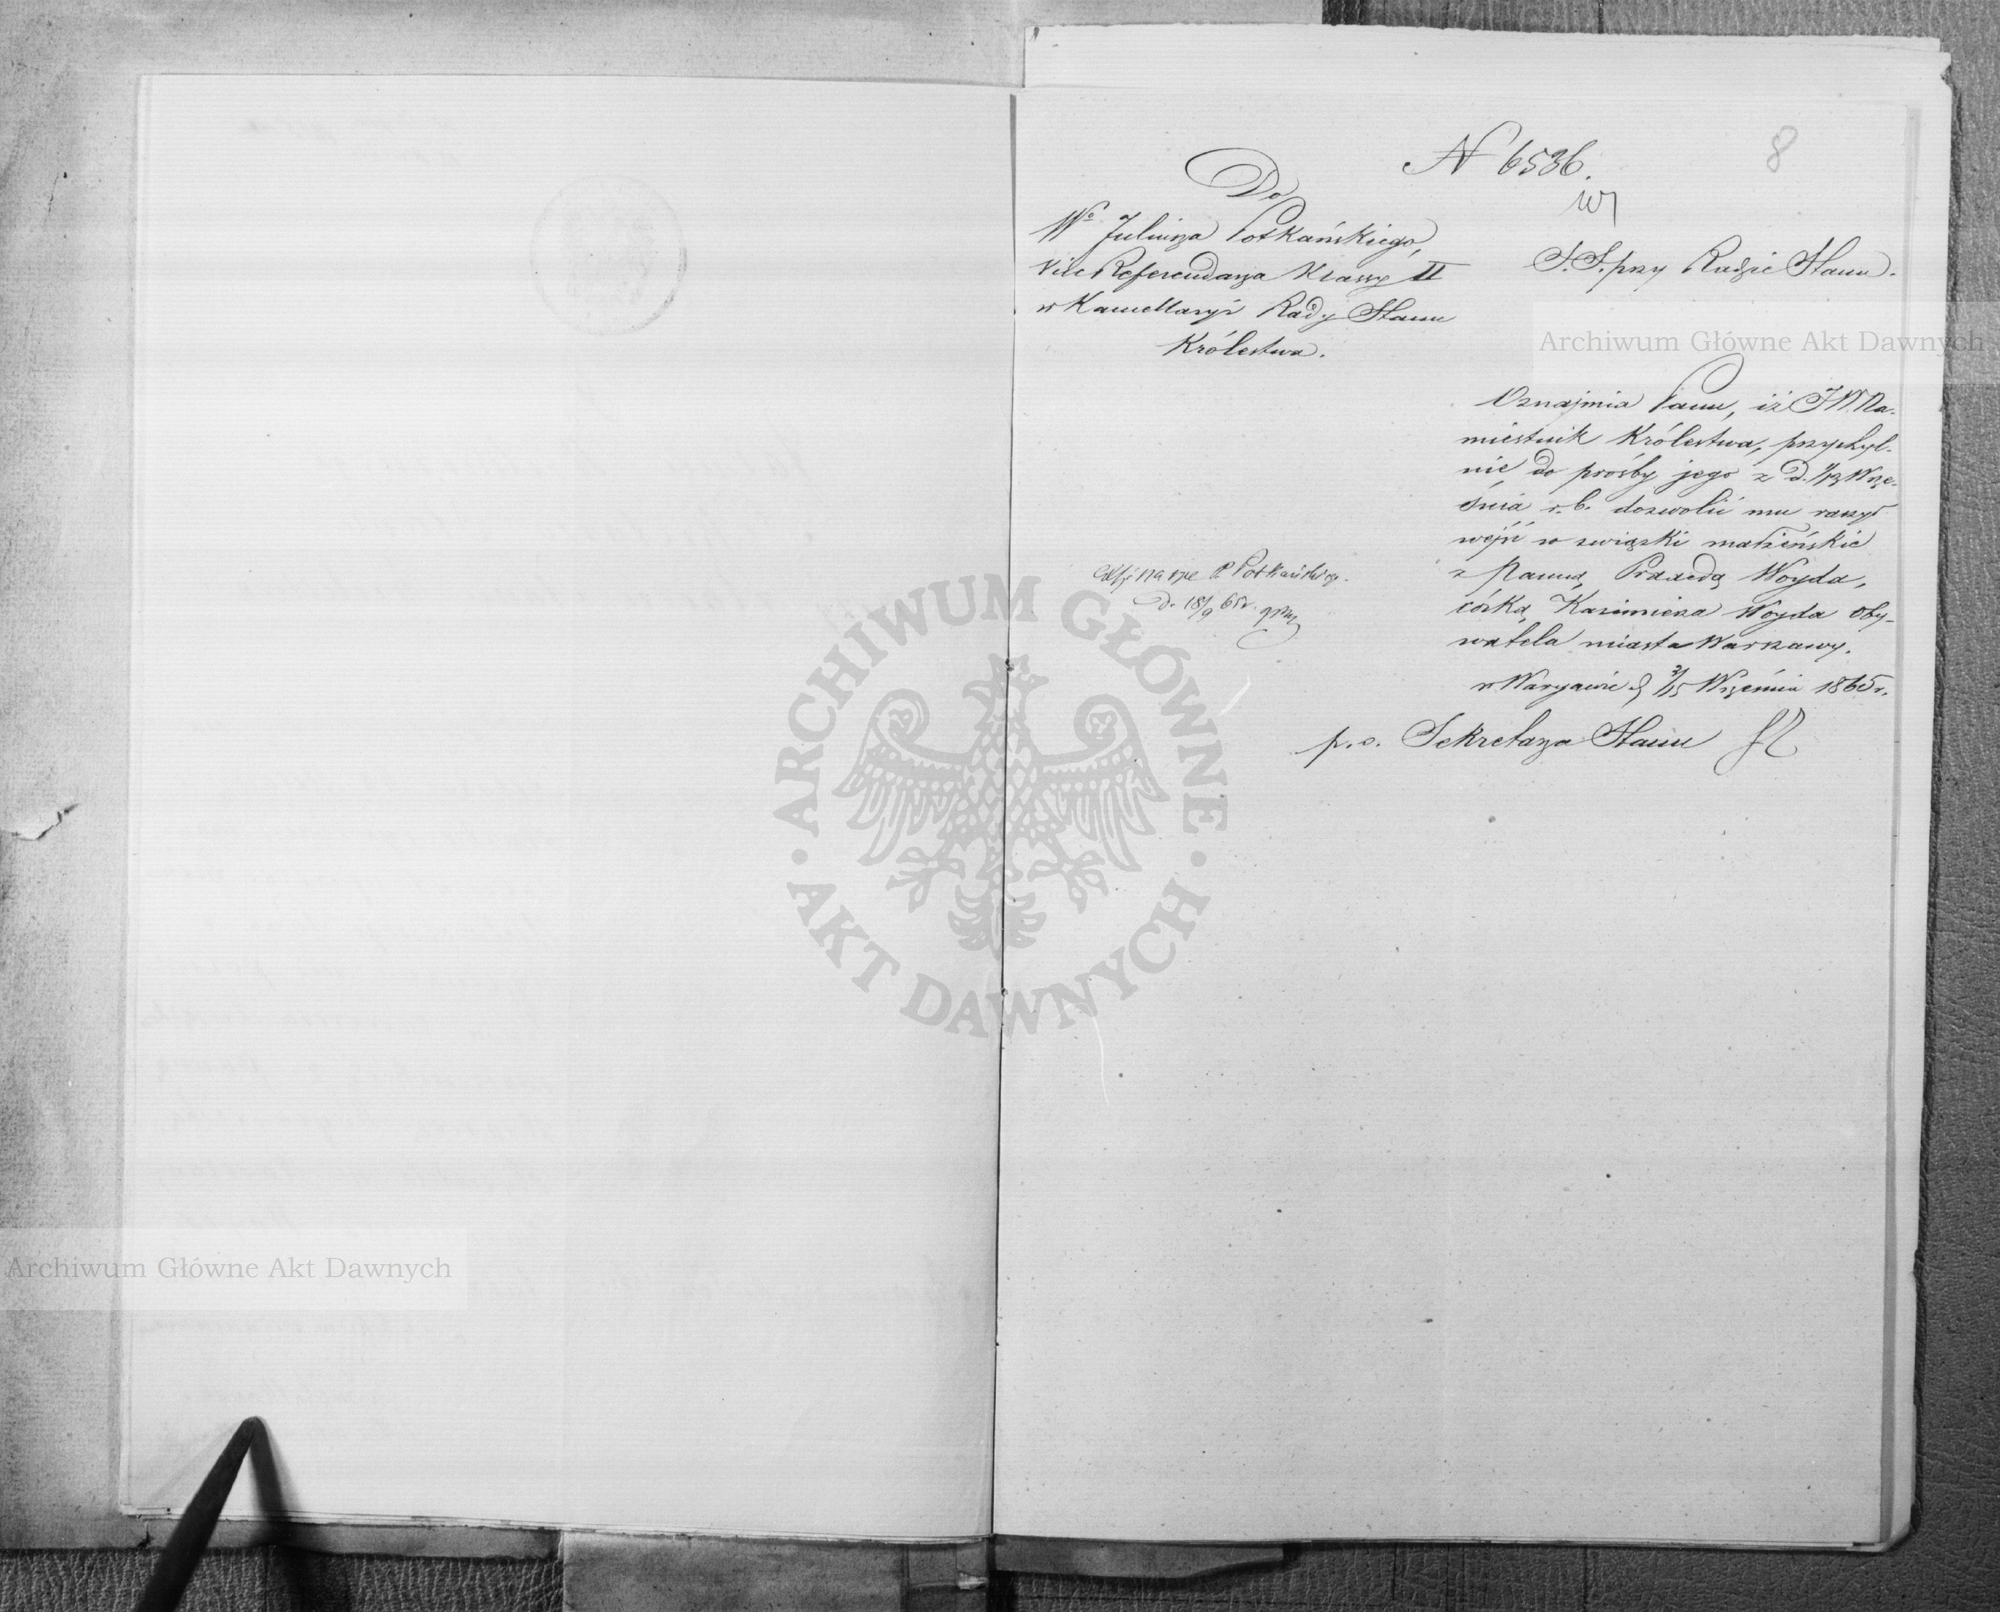 8
N 6536.
Do
Wº Juliusza Potkańskiego,
Vice Referendarza Klassy II
w Kancellaryi Rady Stanu
Królestwa.
S. S. przy Radzie Stanu.
Oznajmia Panu, iż JW. Na-
miestnik Królestwa, przychyl-
nie do prośby jego z D. 1/13 Wrze-
śnia r. b. dozwolić mu raczył
wejść w związki małżeńskie
z Panną Praxedą Woyda,
córką Kazimierza Woyda Oby-
watela miasta Warszawy.
w Warszawie d. 3/15 Września 1865 r.
p. o. Sekretarza Stanu
P Potkańskiego.
D. 18/9 65 r.
Archiwum Główne Akt Dawnych
ARCHIWUM GŁÓWNE
AKT DAWNYCH
Archiwum Główne Akt Dawnych